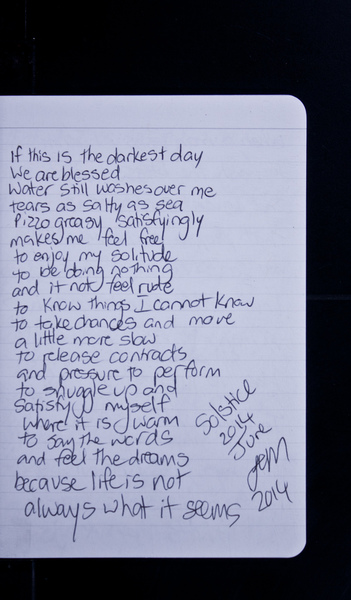 If this is the darkest day
We are blessed
Water still washes over me
tears as salty as sea
Pizza greasy satisfyingly
makes me feel free
to enjoy my solitude
to be doing nothing
and it not feel rude
to know things I cannot know
to take chances and move
a little more slow
to release contracts
and pressure to perform
to snuggle up and
satisfy myself
where it is warm
to say the words
and feel the dreams
because life is not
always what it seems
Solstice
2014
June
JEM
2014